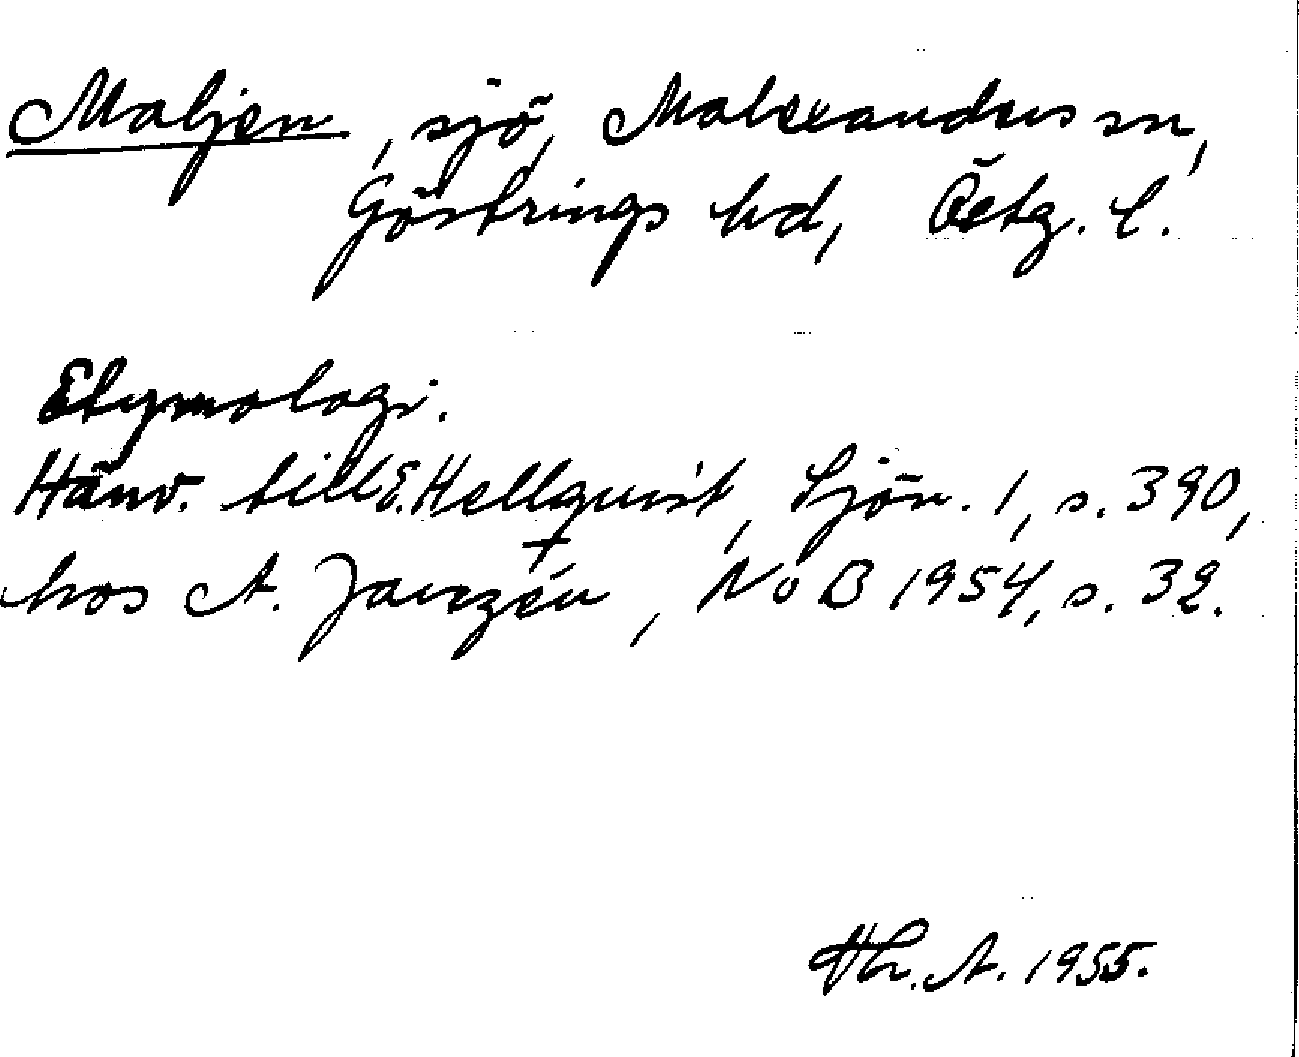 Maljen, sjö, Malexanders sn,
Göstrings hd, Östg. l.
Etymologi.
Hänv. till E. Hellquist, Sjön. 1, s. 390,
hos A. Janzén, NoB 1954, s. 32.
Th. A. 1955.